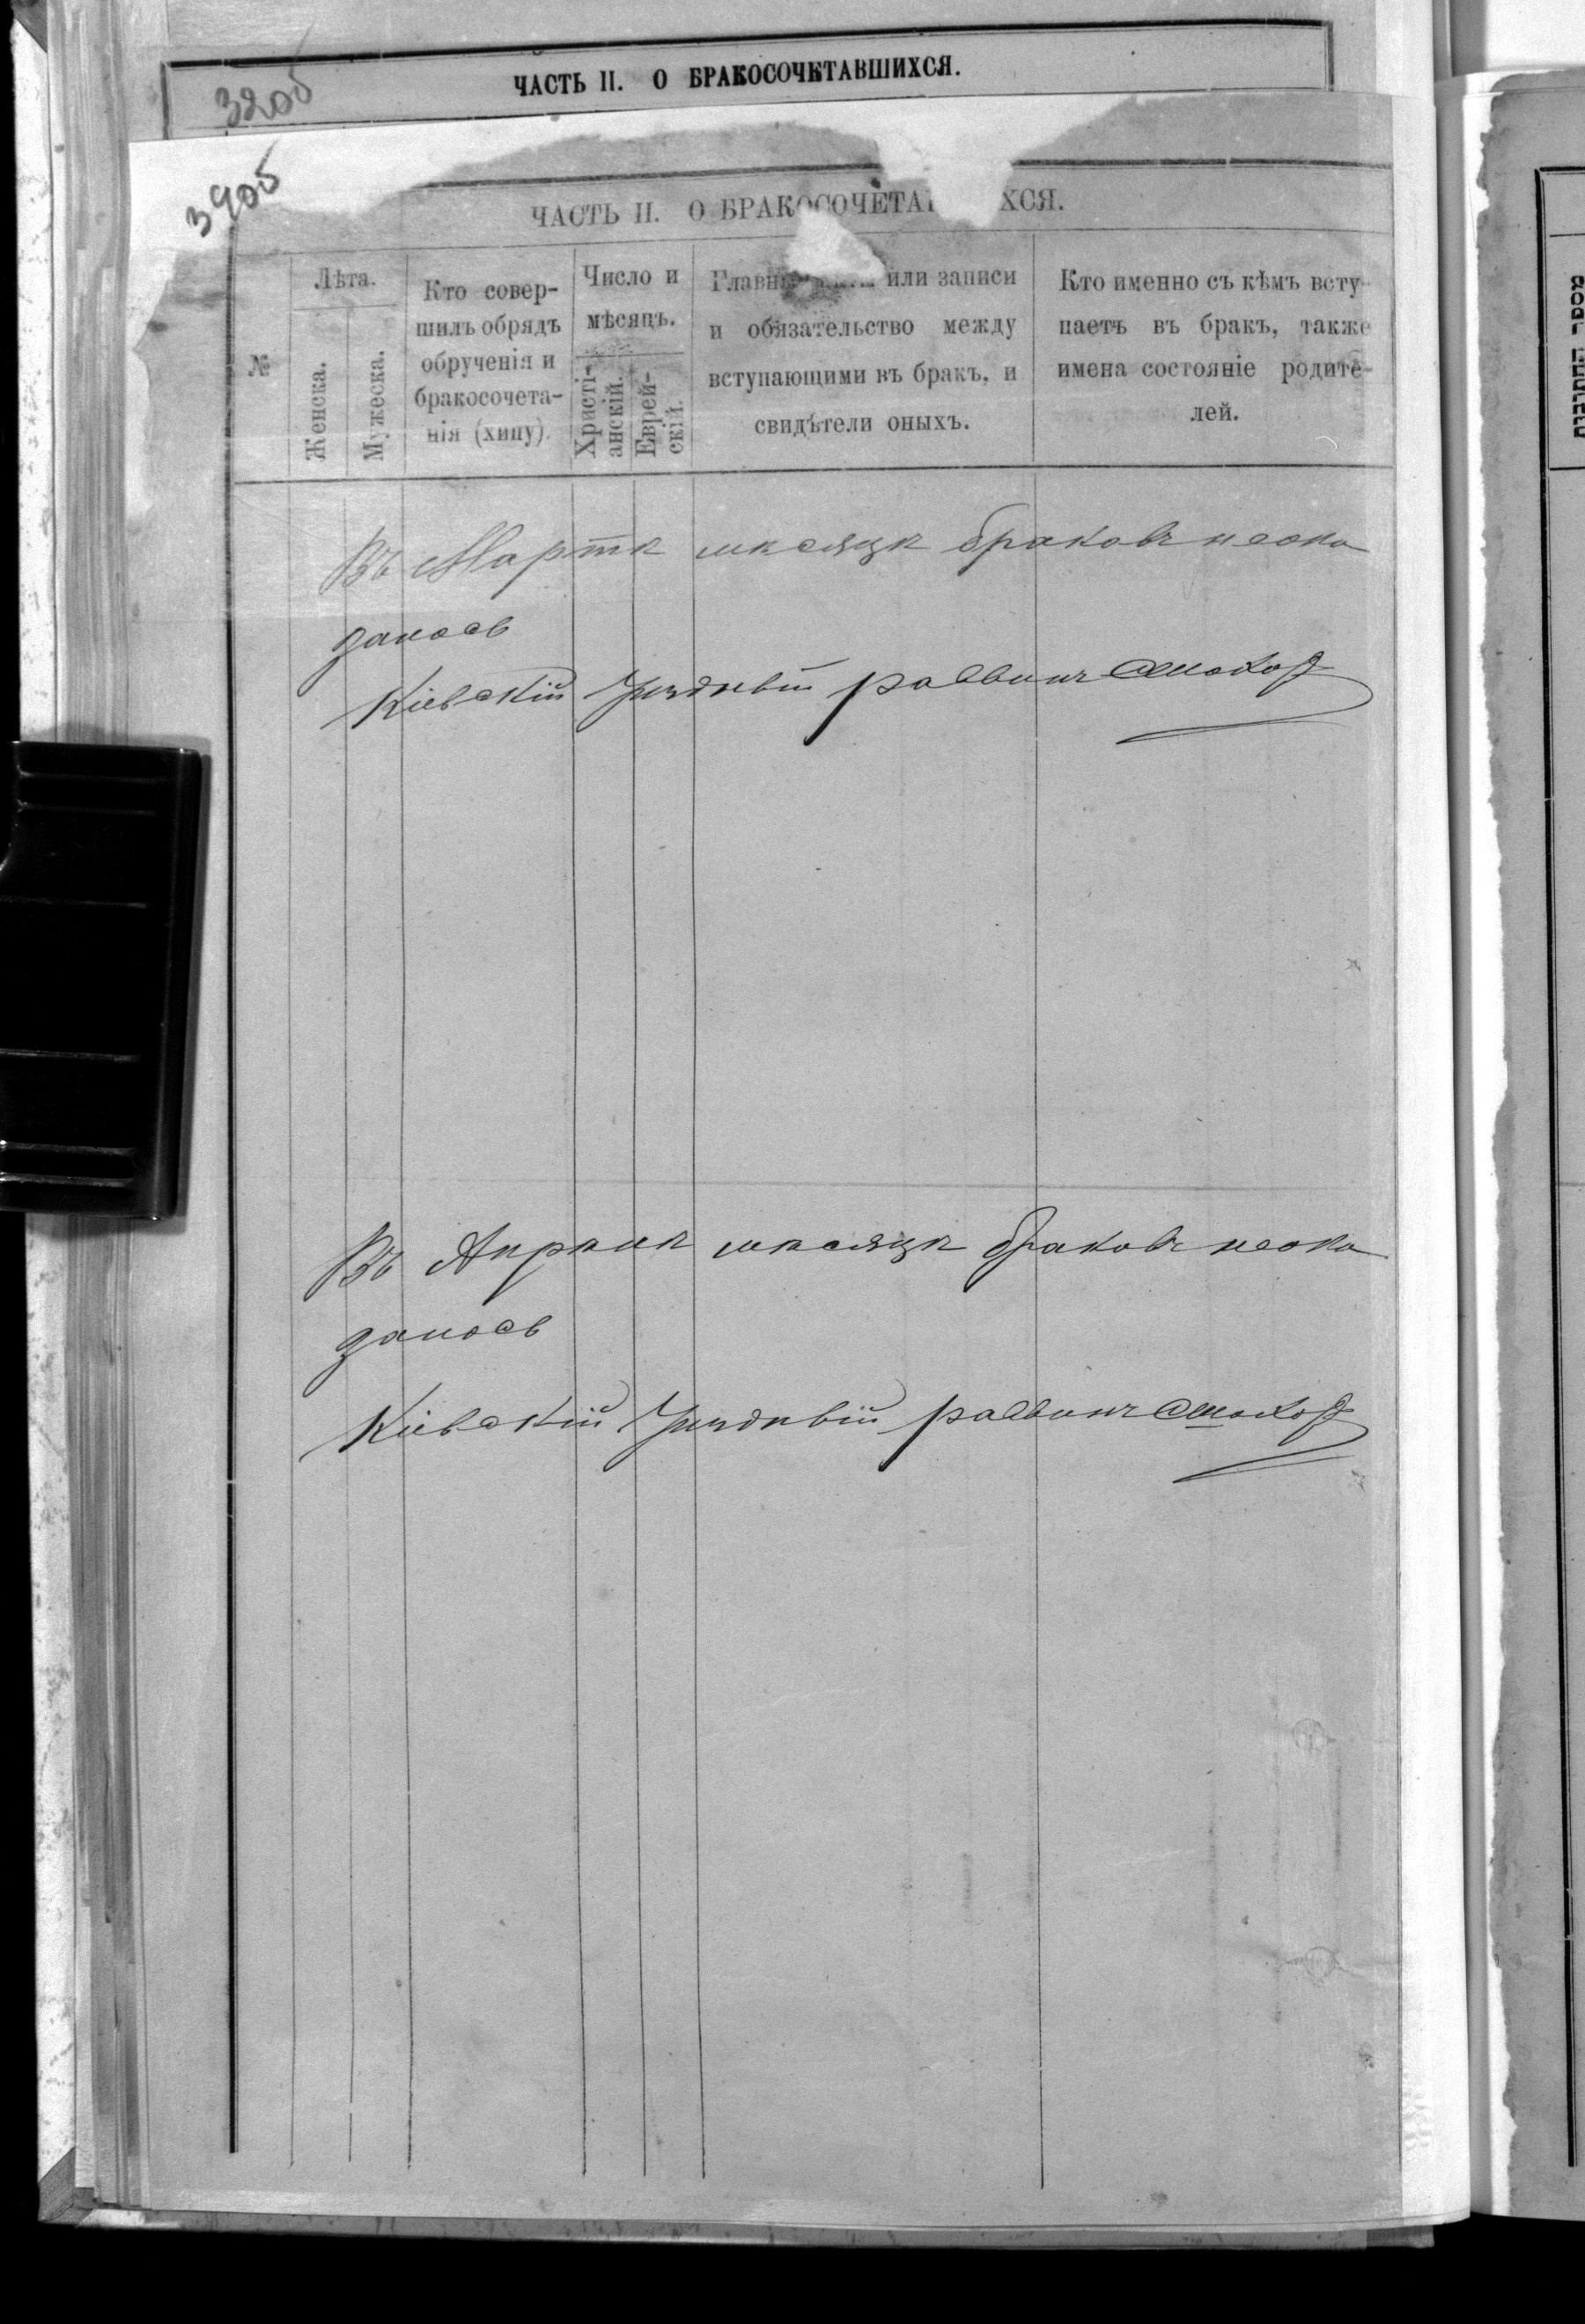 ЧАСТЬ II. О БРАКОСОЧЕТАВШИХСЯ.
ЧАСТЬ II. О БРАКОСОЧЕТА ХСЯ.
№
Лѣта.
Женска.
Мужеска.
Кто совер-
шилъ обрядъ
обрученія и
бракосочета-
нія (хипу).
Число и
мѣсяцъ.
Христі-
анскій.
Еврей-
скій.
Главн или записи
и обязательство между
вступающими въ бракъ, и
свидѣтели оныхъ.
Кто именно съ кѣмъ всту-
паетъ въ бракъ, также
имена состояніе родите-
лей.
Въ Мартѣ мѣсяцѣ браковъ неока
залось
Кіевскій Уѣздный раввинъ
Въ Апрѣлѣ мѣсяцѣ браковъ неока
залось
Кіевскій Уѣздный раввинъ
מספר החתונות